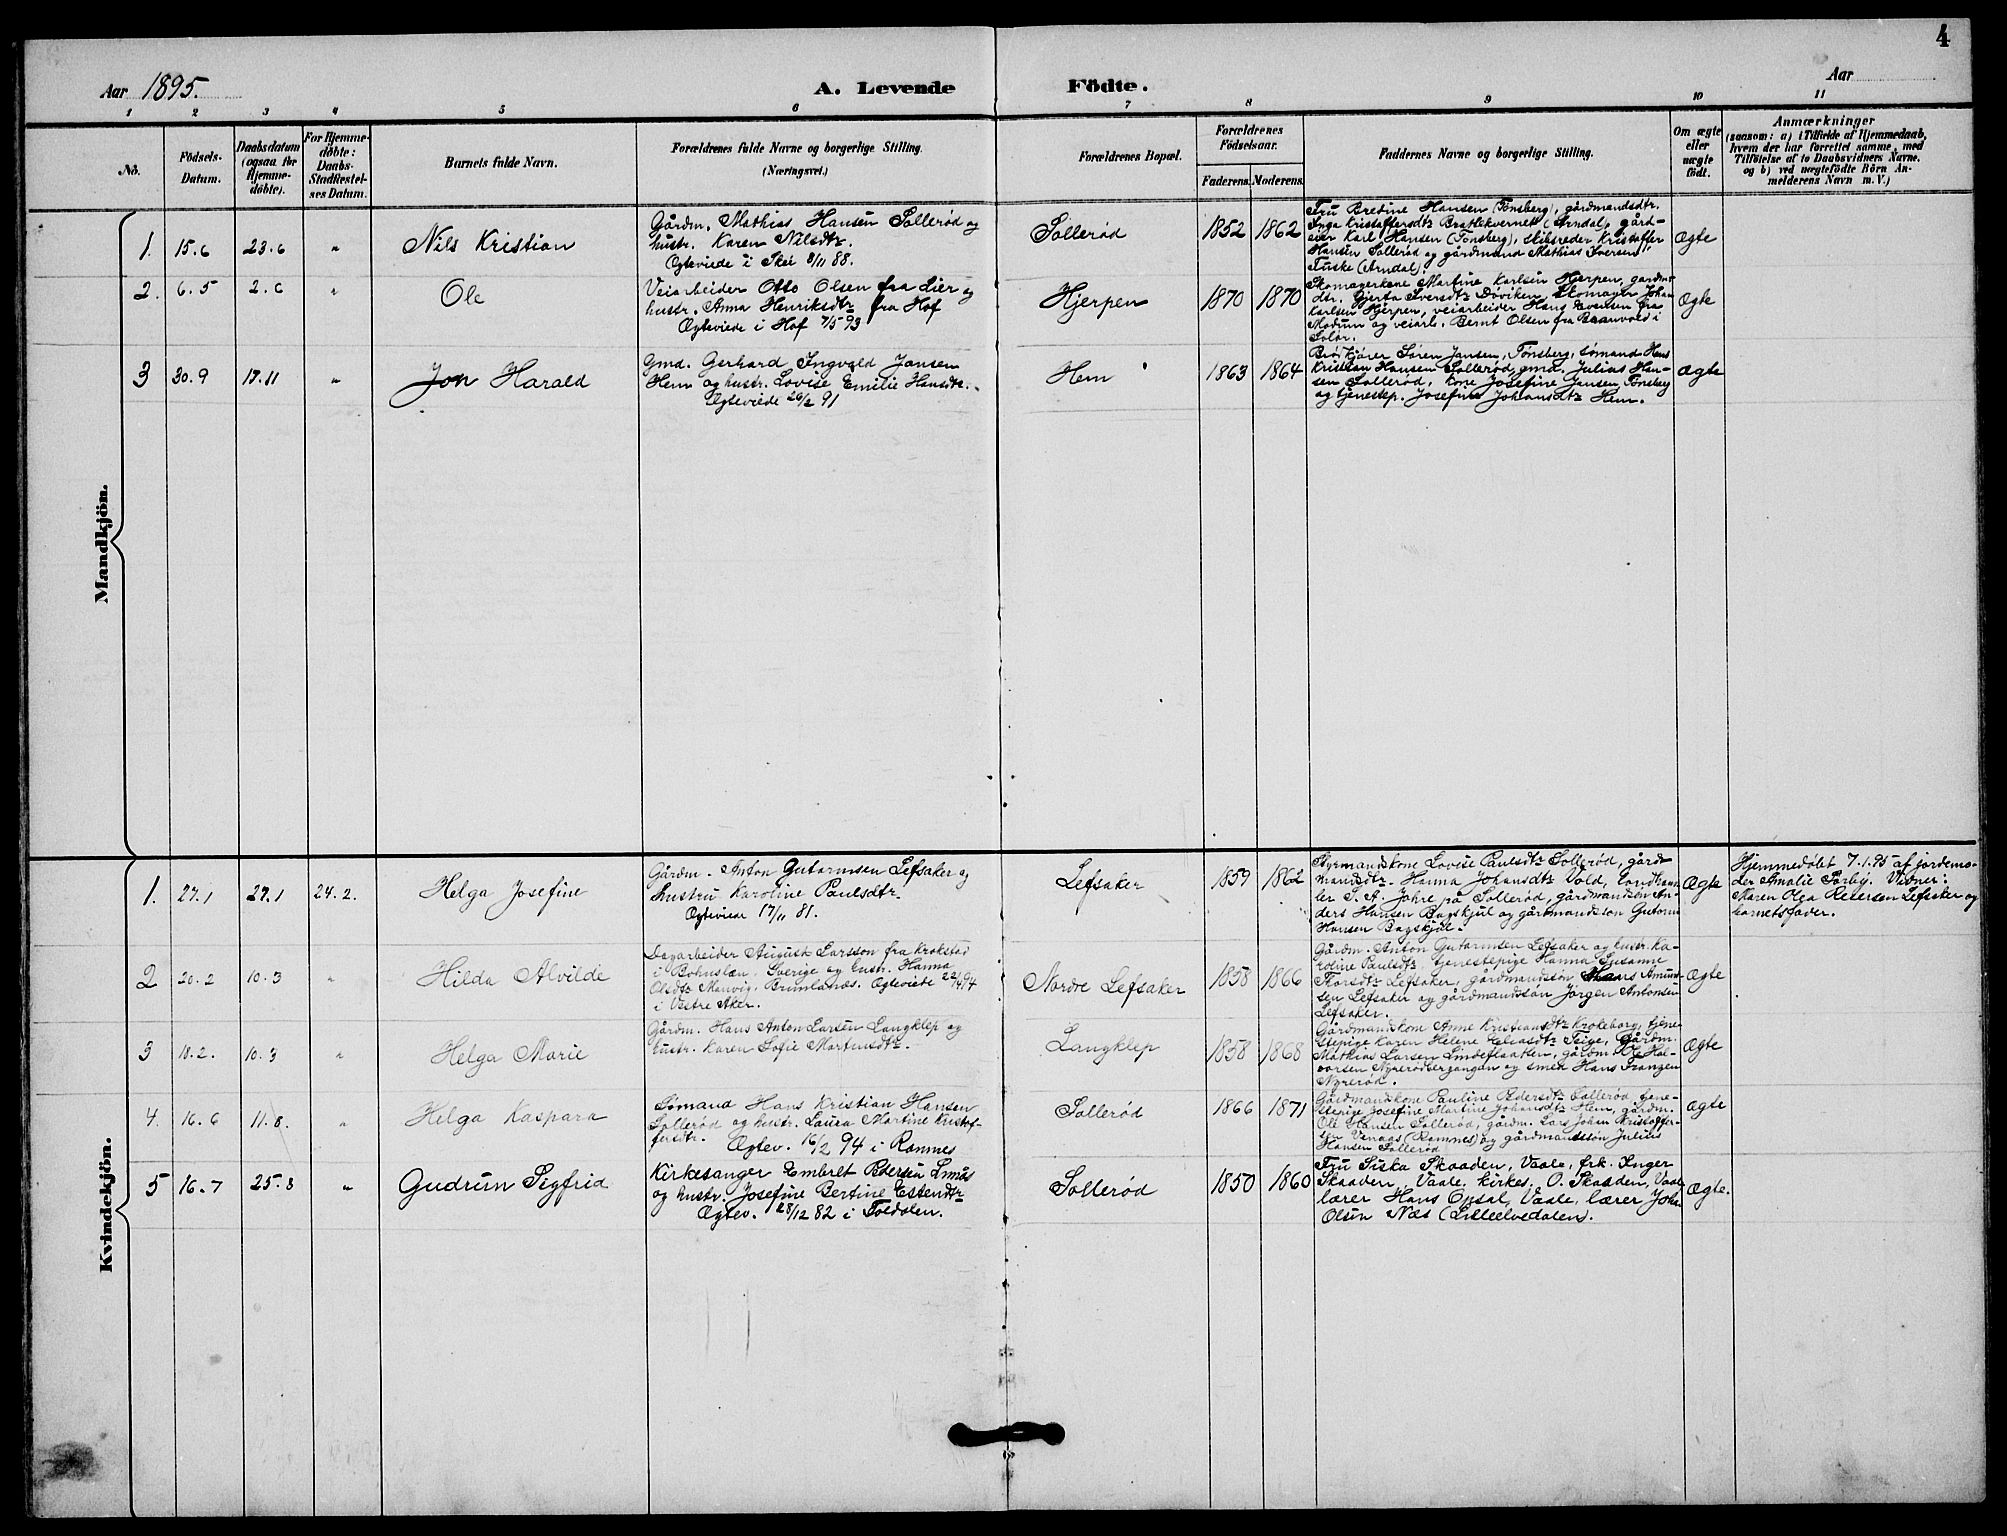 4
Aar 1895.
A. Levende Födte.
Aar
1 2 3 4 5 6 7 8 9 10 11
No.
Födsels-
Datum.
Daabsdatum
(ogsaa for
Hjemme-
döbte).
For Hjemme-
döbte:
Daabs-
Stadfæstel-
ses Datum.
Barnets fulde Navn.
Forældrenes fulde Navne og borgerlige Stilling.
(Næringsvei.)
Forældrenes Bopæl.
Forældrenes
Födselsaar.
Faderens. Moderens.
Faddernes Navne og borgerlige Stilling.
Om ægte
eller
uægte
födt.
Anmærkninger
(saasom: a) i Tilfælde af Hjemmedaab,
hvem der har forrettet samme, med
Tilföielse af to Daabsvidners Navne.
og b) ved uægtefödte Börn An-
melderens Navn m. V.)
Mandkjön.
1. 15.6 23.6 " Nils Kristian
Gårdm. Mathias Hansen Sollerød og
hustr. Karen Nilsdtr.
Ægteviede i Skei 8/11 88.
Sollerød 1852 1862
Fru Bredine Hansen (Tønsberg), gårdmandsdtr.
Inga Kristoffersdtr Brattekvernet (Arndal), gård-
eier Karl Hansen (Tønsberg), skibsreder Kristoffer
Hansen Sollerød og gårdmand Mathias Iversen
Tuske (Arndal).
Ægte
2. 6.5 2.6 " Ole
Veiarbeider Otto Olsen fra Lier og
hustr. Anna Henriksdtr fra Hof
Ægteviede i Hof 7/5 93
Hjerpen 1870 1870
Skomagerkone Martine Karlsen Hjerpen, gardm.
dtr. Gjerta Iversdtr Døviken, skomager Johan
Karlsen Hjerpen, veiarbeider Hans Evensen fra
Modum og veiarb. Bernt Olsen fra
Solør.
Ægte
3 30.9 17.11 " Jon Harald
Gmd. Gerhard Ingvald Jansen
Hem og hustr. Lovise Emilie Hansdtr.
Ægteviede 26/2 91
Hem 1863 1864
Søren Jansen, Tønsberg, sømand Hans
Kristian Hansen Sollerød, gmd. Julius Han-
sen Sollerød, kone Josefine Jansen, Tønsberg
og tjenestep. Josefine Johansdtr Hem.
Ægte
Kvindekjön.
1. 27.1 27.1 24.2. Helga Josefine
Gårdm. Anton Gutormsen Lefsaker og
hustru Karoline Paulsdtr.
Ægteviede 17/11 81.
Lefsaker 1859 1862
Styrmandskone Lovise Paulsdtr Sollerød, gård-
mandsdtr. Hanna Johansdtr Vold, Landhand-
ler S. A. Jahre på Sollerød, gårdmandsøn An-
ders Hansen Bagskjul og gårdmandsøn Gutorm
Hansen Bagskjul.
Ægte
Hjemmedøbt 7.1.95 af jordemo-
der Amalie Sørby. Vidner:
Maren Olea Pedersen Lefsaker og
barnets fader.
2 20.2 10.3 " Hilda Alvilde
Dagarbeider August Larsson fra Krokstad
i Bohuslæn, Sverige og hustr. Hanna
Olsdtr Manvig, Brunlanæs. Ægteviede
i Vestre Aker.
Nordre Lefsaker 1858 1866
Gårdm. Anton Gutormsen Lefsaker og hustr. Ka-
roline Paulsdtr, tjenestepige Hanna Susanne
Thorsdtr Lefsaker, gårdmandsøn Hans Amund-
sen Lefsaker og gårdmandsøn Jørgen Antonsen
Lefsaker.
Ægte
3 18.2. 10.3 " Helga Marie
Gårdm. Hans Anton Larsen Langklep og
hustr. Karen Sofie Martinsdtr.
Langklep 1858 1868
Gårdmandskone Anne Kristiansdtr Krokeborg, tjene-
stepige Karen Helene Eliasdtr Teige, Gårdm.
Mathias Larsen Lindeflaatten, gårdm. Ole Hal-
vorsen Nyrerødbergangan og smed Hans Franzen
Nyrerød.
Ægte
4. 16.6 11.8. " Helga Kaspara
Sømand Hans Kristian Hansen
Sollerød og hustr. Laura Martine Kristof-
fersdtr. Ægtev. 16/2 94 i Ramnes
Sollerød 1866 1871
Gårdmandskone Pauline Pedersdtr Sollerød, tjene-
stepige Josefine Martine Johansdtr Hem, gårdm.
Ole Hansen Sollerød, gårdm. Lars Johan Kristoffer-
sen Venaas (Ramnes) og gårdmandssøn Julius
Hansen Sollerød
Ægte
5 16.7 25.8 " Gudrun Sigfrid
Kirkesanger Embret Pedersen Lunås
og hustr. Josefine Bertine Estensdtr
Ægtev. 28/12 82 i Foldalen.
Sollerød 1850 1860
Fru Siska Skaaden, Vaale, frk. Inger
Skaaden, Vaale, kirkes. O. Skaaden, Vaale
lærer Hans Opsal, Vaale, lærer Johan
Olsen Næs (Lilleelvedalen).
Ægte.